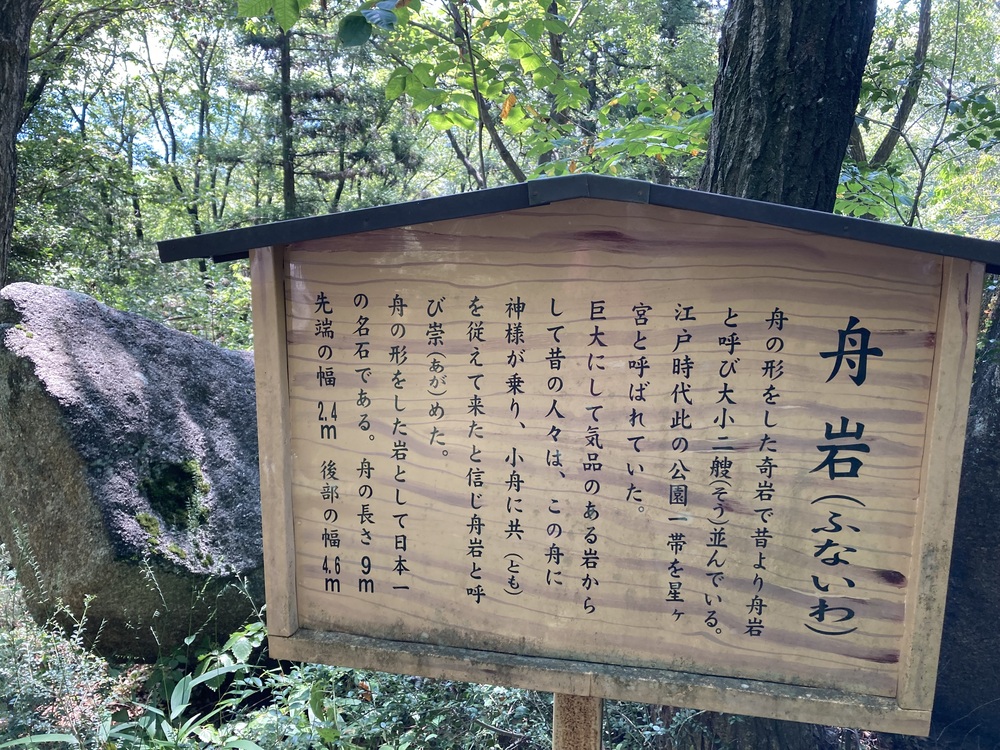 舟岩(ふないわ)
舟の形をした奇岩で昔より舟岩
と呼び大小二艘(そう)並んでいる。
江戸時代此の公園一帯を星ヶ
宮と呼ばれていた。
巨大にして気品のある岩から
して昔の人々は、この舟に
神様が乗り、小舟に共(とも)
を従えて来たと信じ舟岩と呼
び崇(あが)めた。
舟の形をした岩として日本一
の名石である。舟の長さ9m
先端の幅 2.4m 後部の幅 4.6m